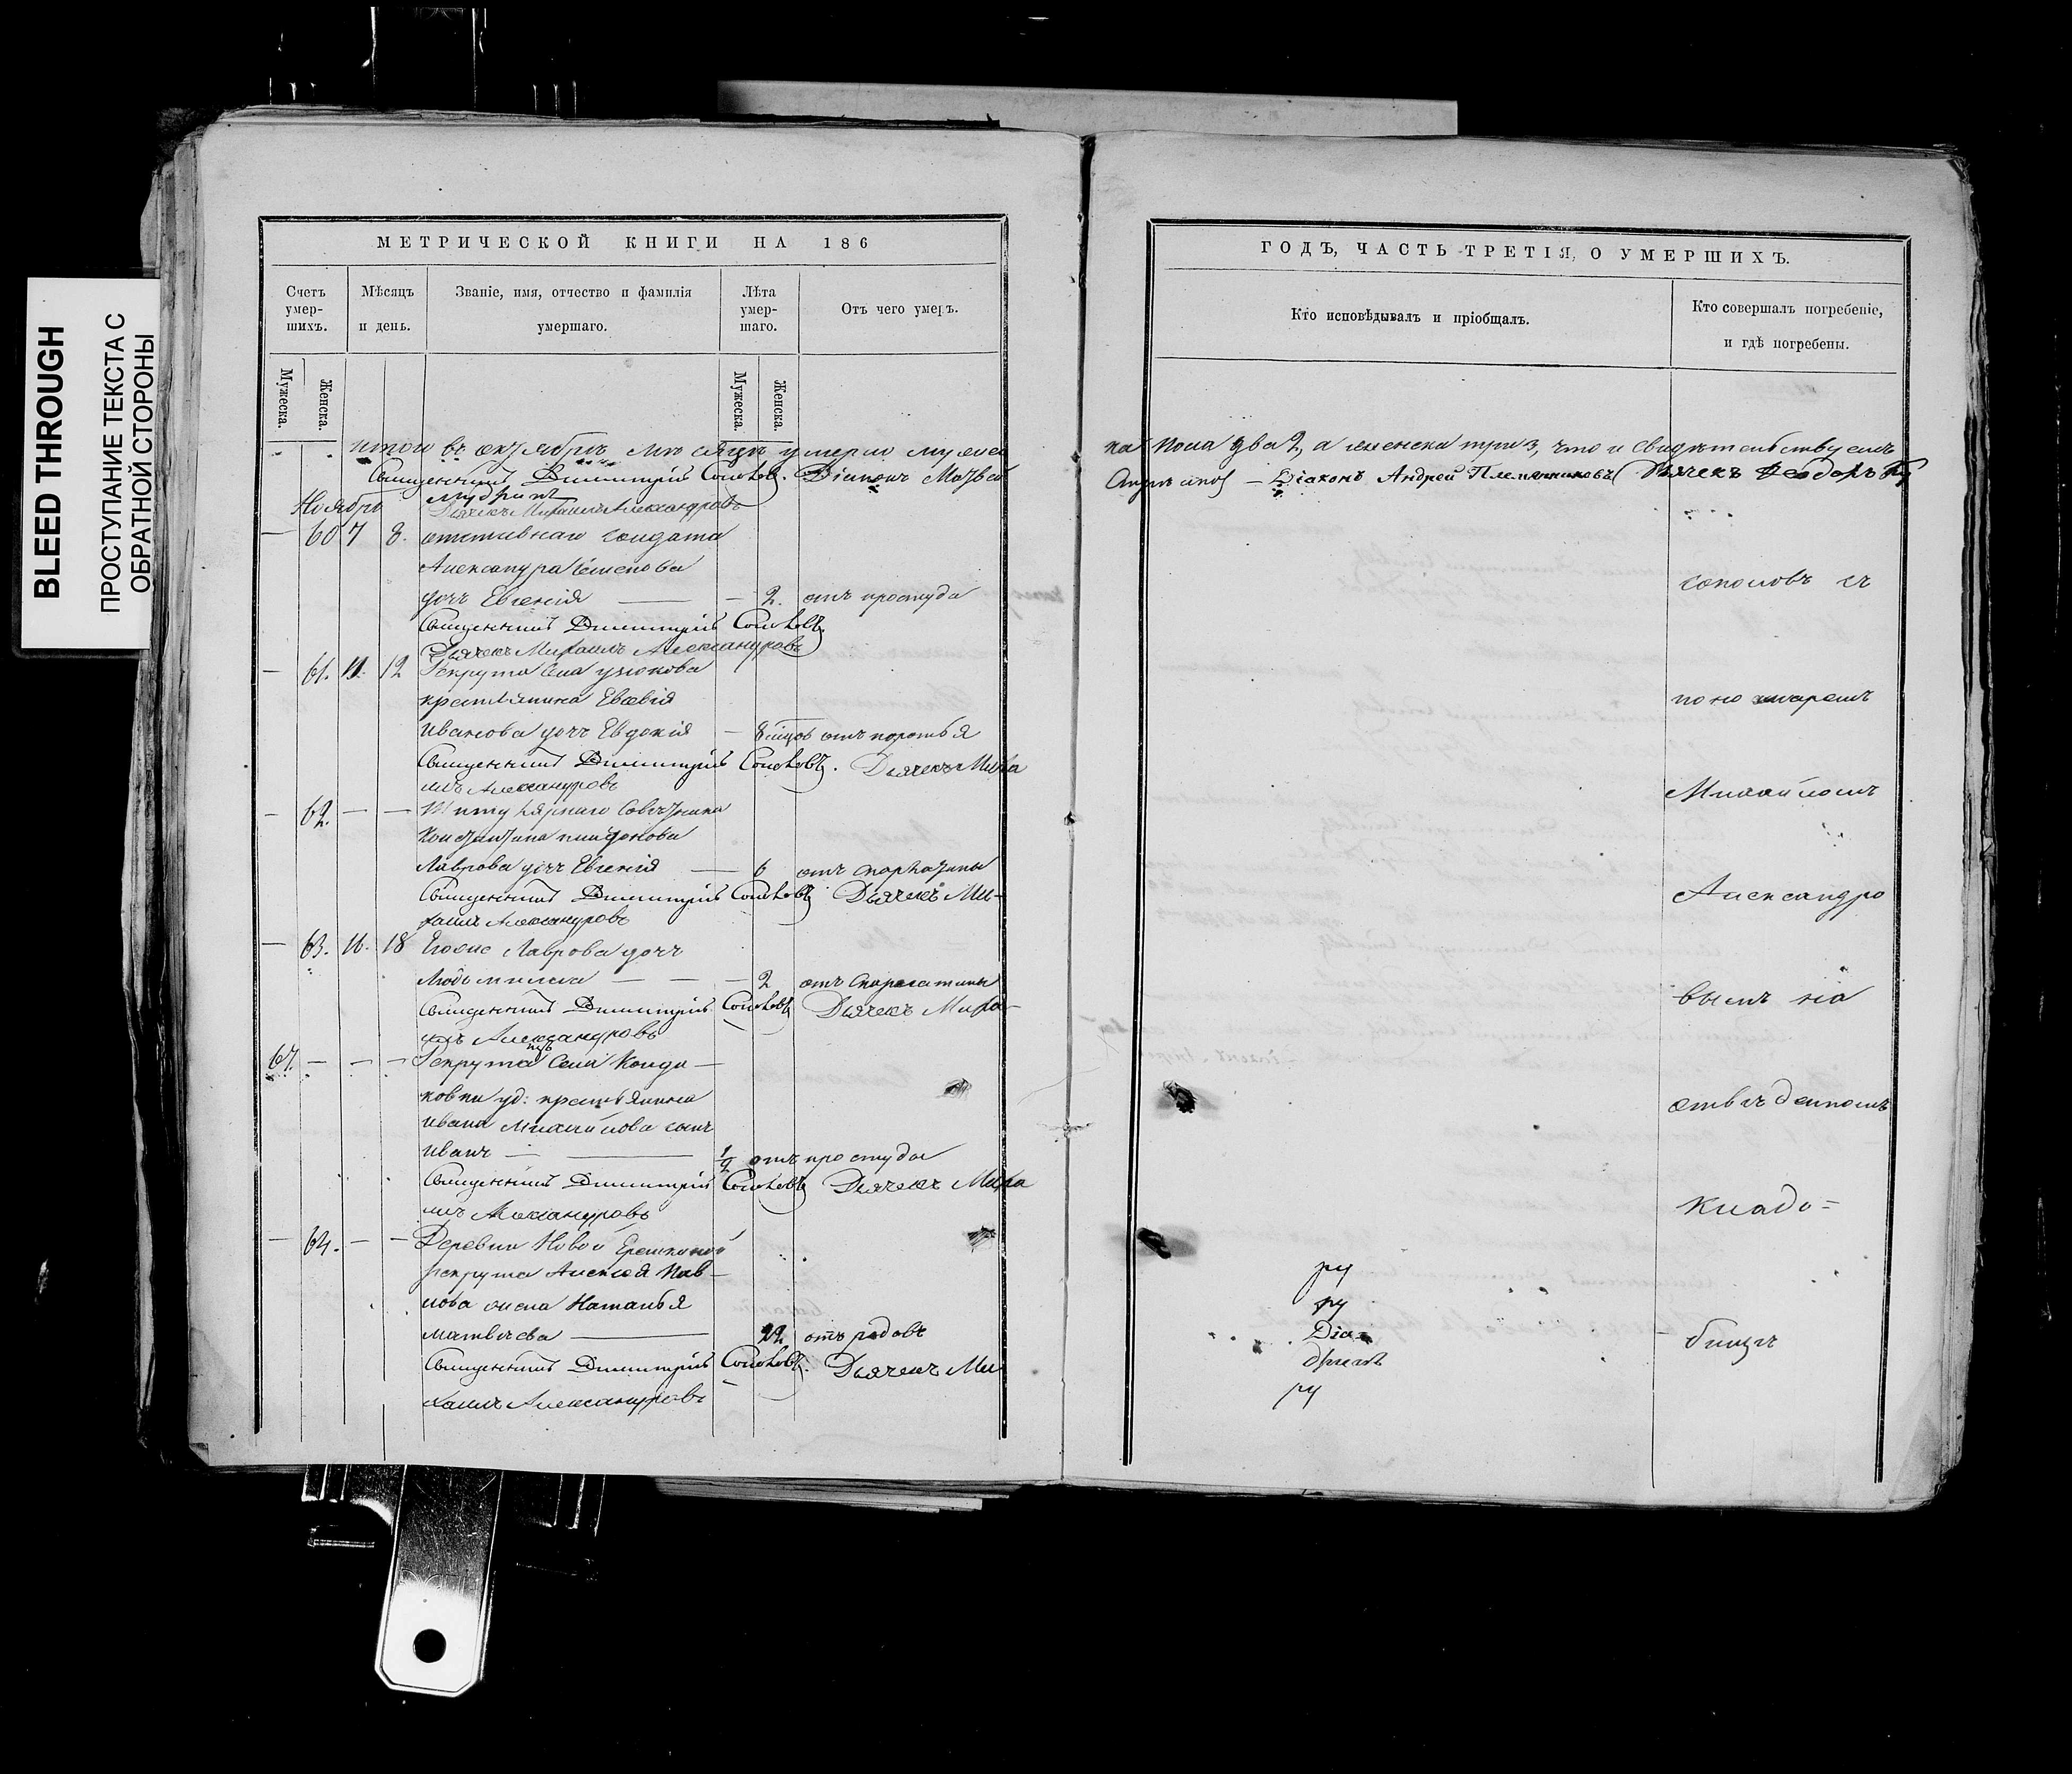 BLEED THROUGH
ПРОСТУПАНИЕ ТЕКСТА С
ОБРАТНОЙ СТОРОНЫ
МЕТРИЧЕСКОЙ КНИГИ НА 186
Счетъ умер-шихъ.
Мѣсяцъ и день.
Званіе, имя, отчество и фамилія умершаго.
Лѣта умер-шаго.
Отъ чего умеръ.
Мужеска.
Женска.
Мужеска.
Женска.
итого въ октябрѣ мѣсяцѣ умерло мужес
Священникъ Димитрій Соколовъ. Діаконъ Матвей
Ноябрь
Дьячекъ Михаилъ Александровъ
— 60 7 8. солдата
Александра Семенова
дочь Евгенія — — 2. отъ простуды
Священникъ Димитрій Соколовъ
Дьячекъ Михаилъ Александровъ
— 61. 11. 12 Рекрута села
крестьянина
Иванова дочь Евдокія —
Священникъ Димитрій Соколовъ. Дьячекъ Миха
илъ Александровъ
— 62. — — Титулярнаго Совѣтника
Константина
Лаврова дочь Евгенія — 6 отъ скарлатины
Священникъ Димитрій Соколовъ Дьячекъ Ми-
хаилъ Александровъ
— 63. 16. 18 Егоже Лаврова дочь
Людмила — — — 2 отъ скарлатины
Священникъ Димитрій Соколовъ Дьячекъ Миха-
илъ Александровъ
67. — — — Рекрута села Конда-
ковки уд: крестьянина
Ивана Михайлова сынъ
Иванъ — — 1/2 отъ простуды
Священникъ Димитрій Соколовъ Дьячекъ Миха
илъ Александровъ
— 64. — — Деревни Новой
рекрута Алексея Пав-
лова жена Наталья
Матвѣева — 22 отъ родовъ
Священникъ Димитрій Соколовъ. Дьячекъ Ми
хаилъ Александровъ
ГОДЪ, ЧАСТЬ ТРЕТІЯ, О УМЕРШИХЪ.
Кто исповѣдывалъ и пріобщалъ.
Кто совершалъ погребеніе, и гдѣ погребены.
ка пола два 2, а женска три 3, что и свидѣтельствуемъ
Діаконъ Андрей Племянниковъ Дьячекъ Феодоръ
соколовъ съ
Михайломъ
Александро
вымъ на
кладо=
бищѣ
ру
ру
Діа
ру